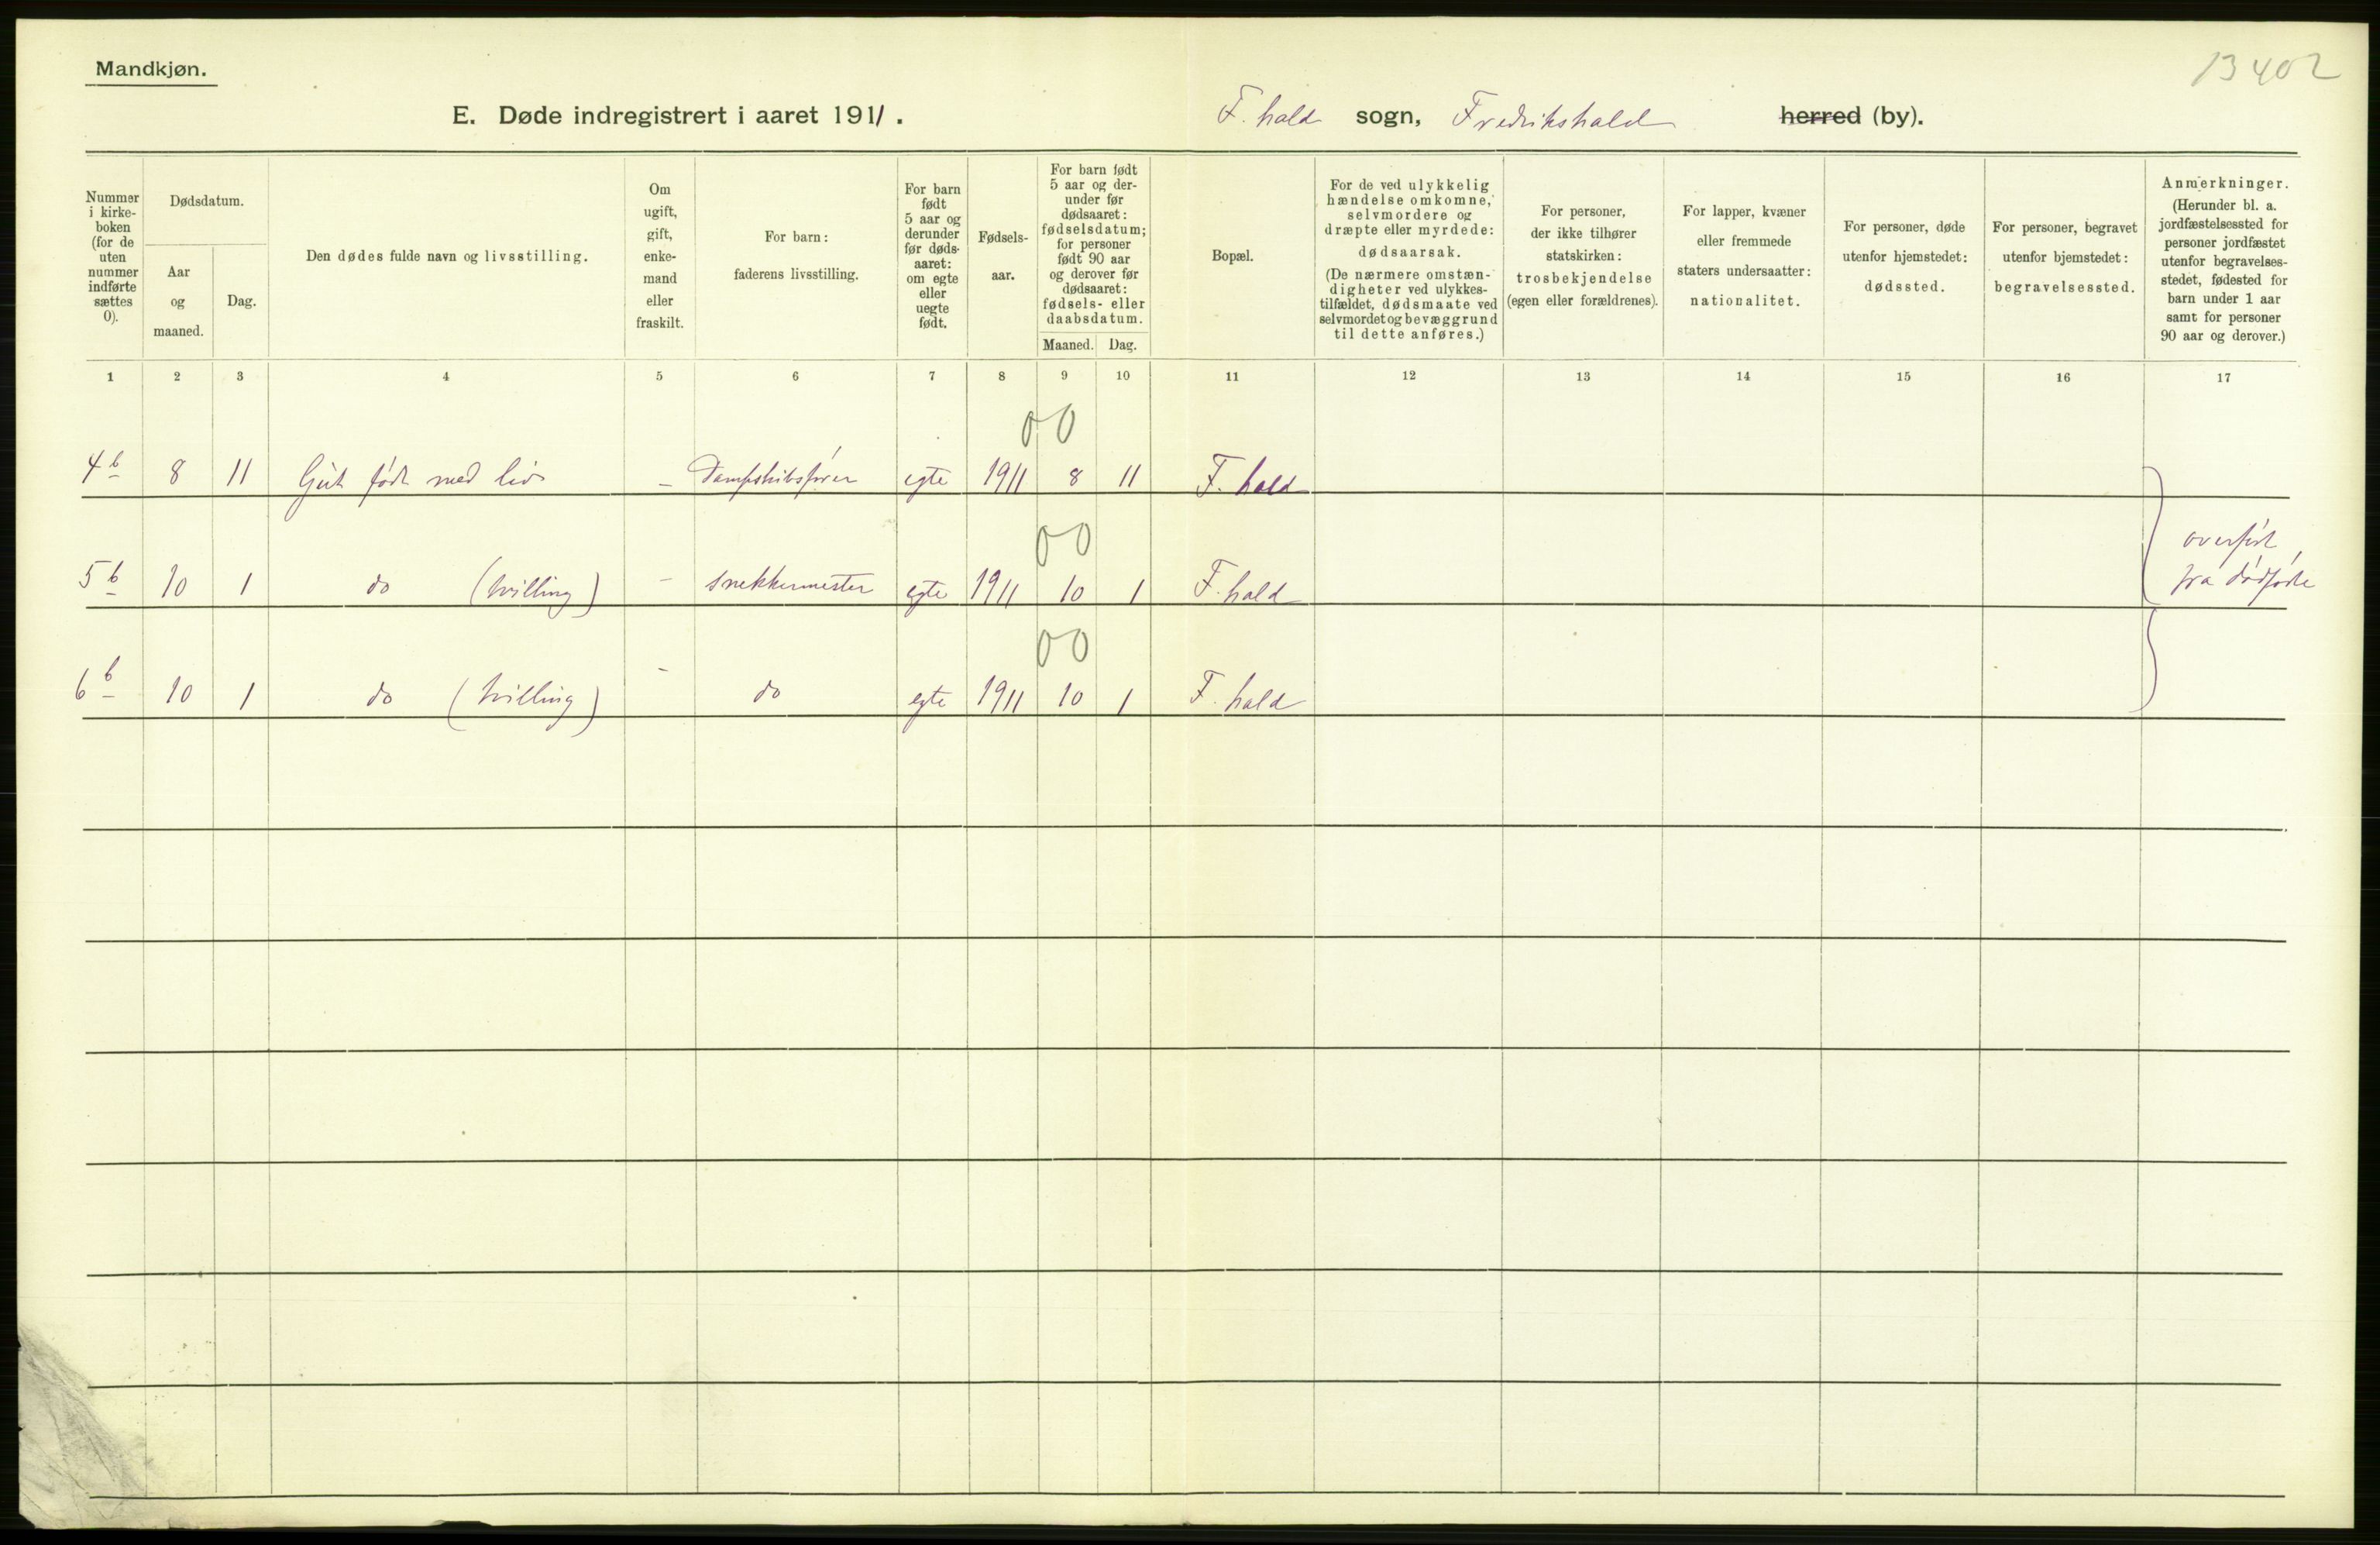 Mandkjøn.
13402
E. Døde indregistrert i aaret 1911. F. hald sogn, Fredrikshald herred (by).
Nummer i kirkeboken (for de uten nummer indførte sættes 0).
Dødsdatum.
Aar og maaned.
Dag.
Den dødes fulde navn og livsstilling.
Om ugift, gift, enkemand eller fraskilt.
For barn: faderens livsstilling.
For barn født 5 aar og derunder før dødsaaret: om egte eller uegte født.
Fødselsaar.
For barn født 5 aar og derunder før dødsaaret: fødselsdatum; for personer født 90 aar og derover før dødsaaret: fødsels- eller daabsdatum.
Maaned. Dag.
Bopæl.
For de ved ulykkelig hændelse omkomne, selvmordere og dræpte eller myrdede: dødsaarsak. (De nærmere omstændigheter ved ulykkestilfældet, dødsmaate ved selvmordet og bevæggrund til dette anføres.)
For personer, der ikke tilhører statskirken: trosbekjendelse (egen eller forældrenes).
For lapper, kvæner eller fremmede staters undersaatter: nationalitet.
For personer, døde utenfor hjemstedet: dødssted.
For personer, begravet utenfor bjemstedet: begravelsessted.
Anmerkninger. (Herunder bl. a. jordfæstelsessted for personer jordfæstet utenfor begravelsesstedet, fødested for barn under 1 aar samt for personer 90 aar og derover.)
1 2 3 4 5 6 7 8 9 10 11 12 13 14 15 16 17
00
4 b 8 11 Gut født med liv - Dampskibsfører egte 1911 8 11 F. hald
00
5 b 10 1 do (tvilling) - snekkermester egte 1911 10 1 F. hald overført fra dødfødte
00
6 b 10 1 do (tvilling) - do egte 1911 10 1 F. hald